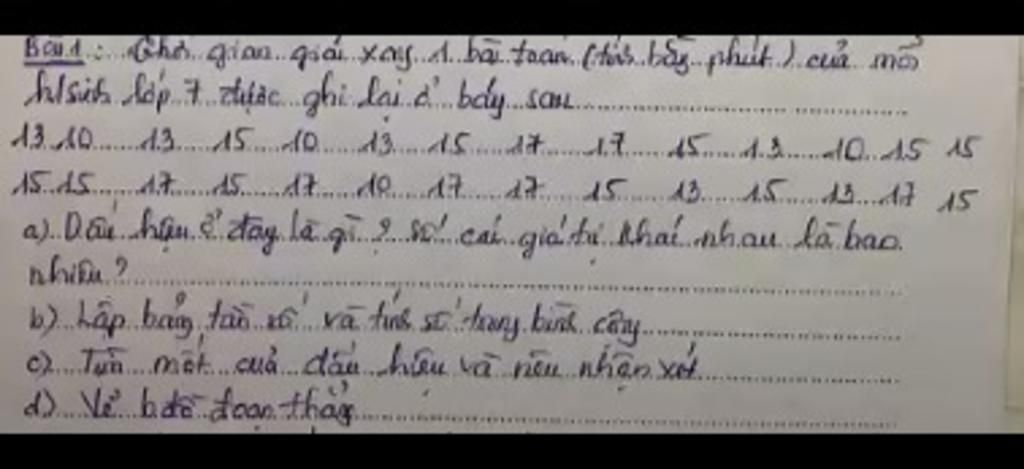 Bài 1: Thời gian giải xong 1 bài toán (tính bằng phút) của mỗi
h/sinh lớp 7 được ghi lại ở bảy sau
13 10 13 15 10 13 15 17 17 15 13 10 15 15
15 15 17 15 17 10 17 17 15 13 15 13 17 15
a) Dấu hiệu ở đây là gì? Số các giá trị khác nhau là bao
nhiêu?
b) Lập bảng tần số và tính số trung bình cộng
c) Tìm mốt của dấu hiệu và nêu nhận xét
d) Vẽ b.đồ đoạn thẳng